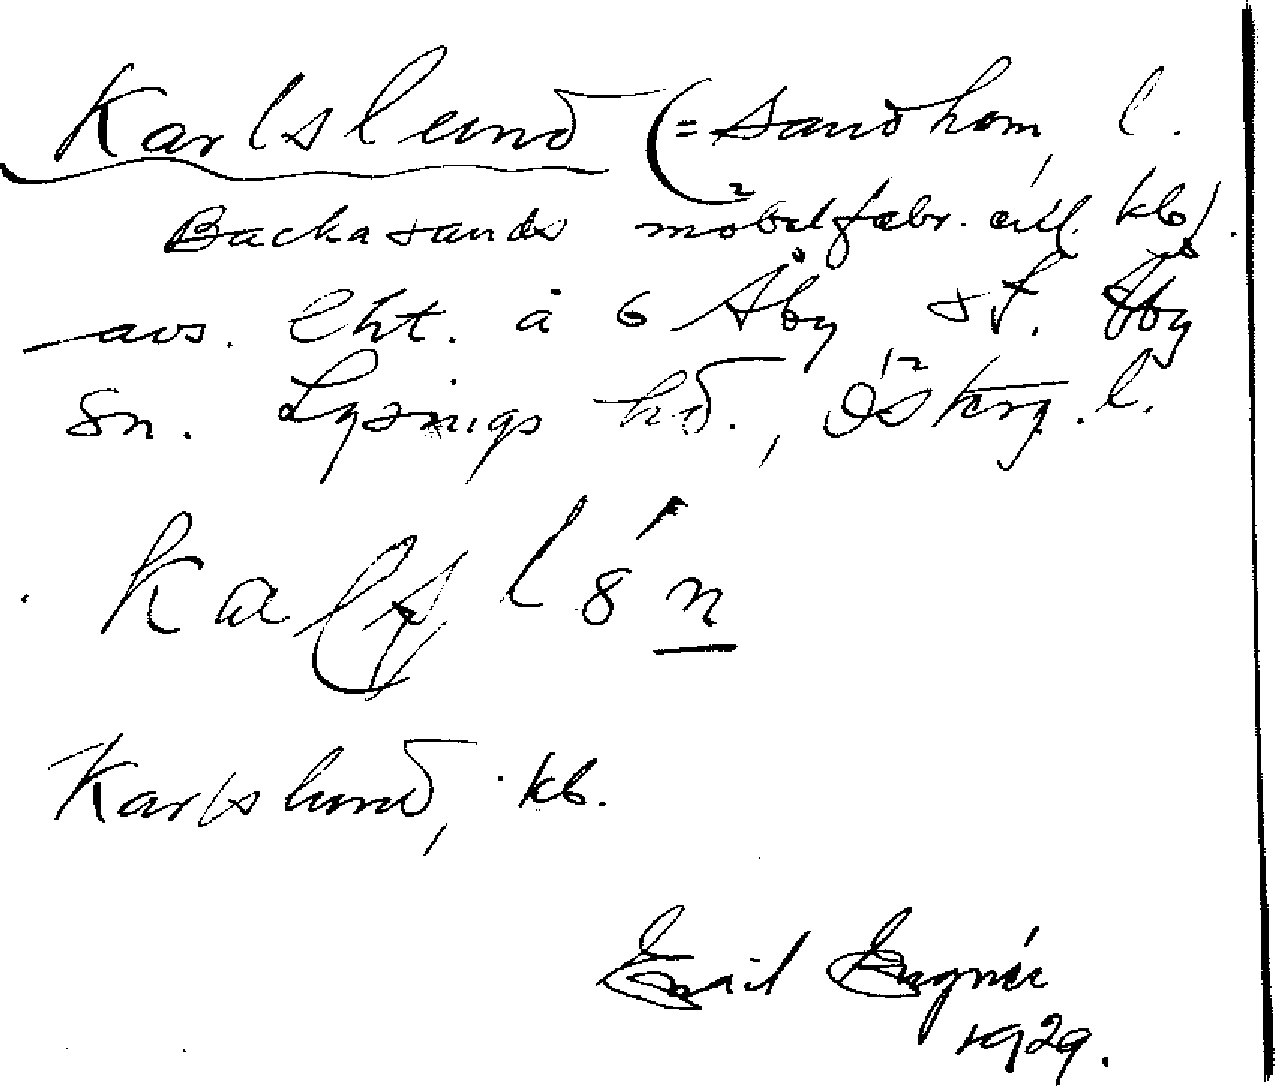 Karlslund (= Sandhem, l.
Backasands möbelfabr. till. kb).
avs. lht. å 6 Åby i St. Åby
sn. Lysings hd., Österg. l.
Karlslund, kb.
Emil Engnér
1929.